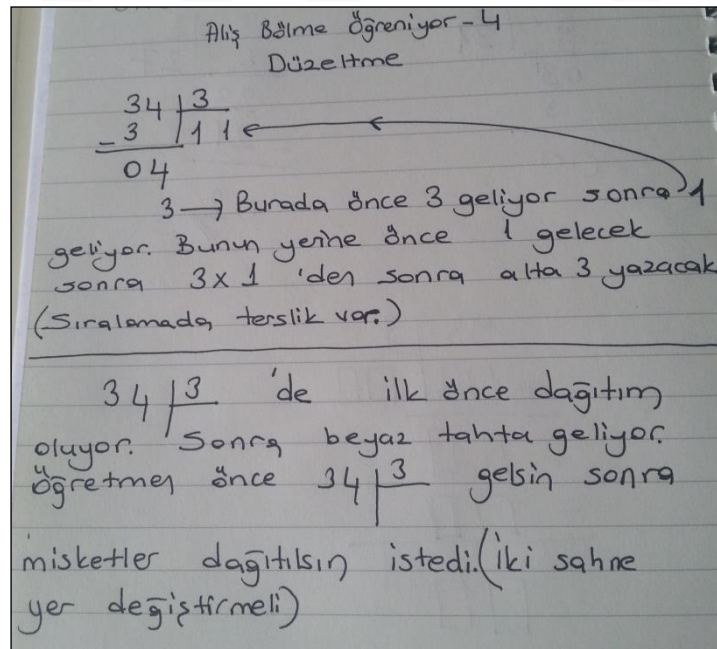 Aliş Bölme Öğreniyor - 4
Düzeltme
34 | 3
- 3 | 1 1
04
3 → Burada önce 3 geliyor sonra 1
geliyor. Bunun yerine önce 1 gelecek
sonra 3x1 'den sonra alta 3 yazacak
(Sıralamada terslik var.)
34 | 3 'de ilk önce dağıtım
oluyor. Sonra beyaz tahta geliyor.
Öğretmen önce 34 | 3 gelsin sonra
misketler dağıtılsın istedi. (İki sahne
yer değiştirmeli)